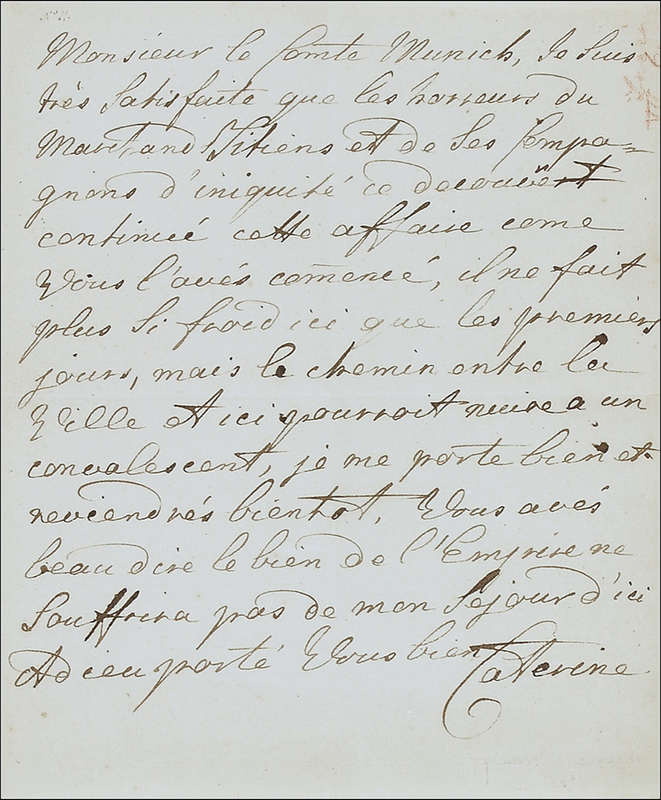 Monsieur le Comte Munich, Je suis
très satisfaite que les horreurs du
Marchand Titiens et de ses Compa=
gnons d'iniquité ce decouvrent
continué cette affaire come
Vous l'avés comencé, il ne fait
plus si froid ici que les premiers
jours, mais le chemin entre la
Ville et ici pourroit nuire a un
convalescent, je me porte bien et
reviendrés bientot, Vous avés
beau dire le bien de l'Empire ne
Souffrira pas de mon Sejour d'ici
Adieu porté Vous bien
Caterine